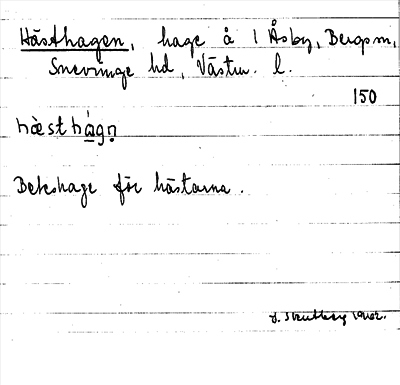 Hästhagen, hage å 1 Åsby, Bergs sn,
Snevringe hd, Västm. l.
150
hæsthágn̥
Beteshage för hästarna.